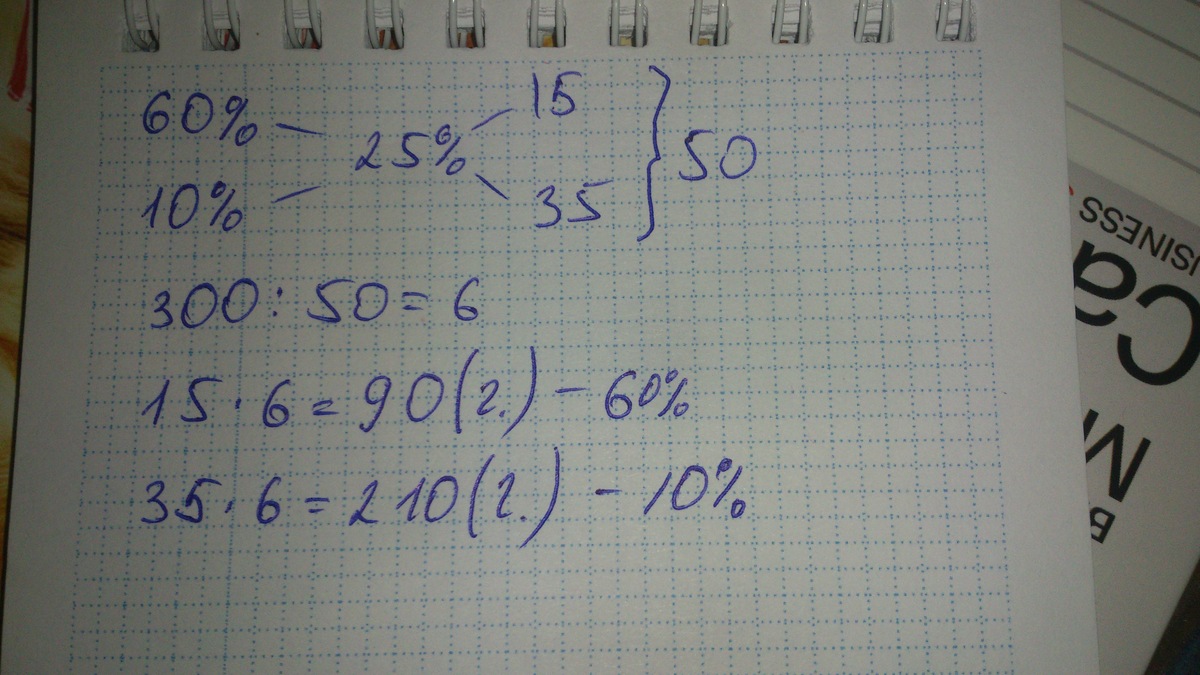 60% 15
25% } 50
10% 35
300 : 50 = 6
15 · 6 = 90 (г.) – 60%
35 · 6 = 210 (г.) – 10%
BUSINESS
Ca